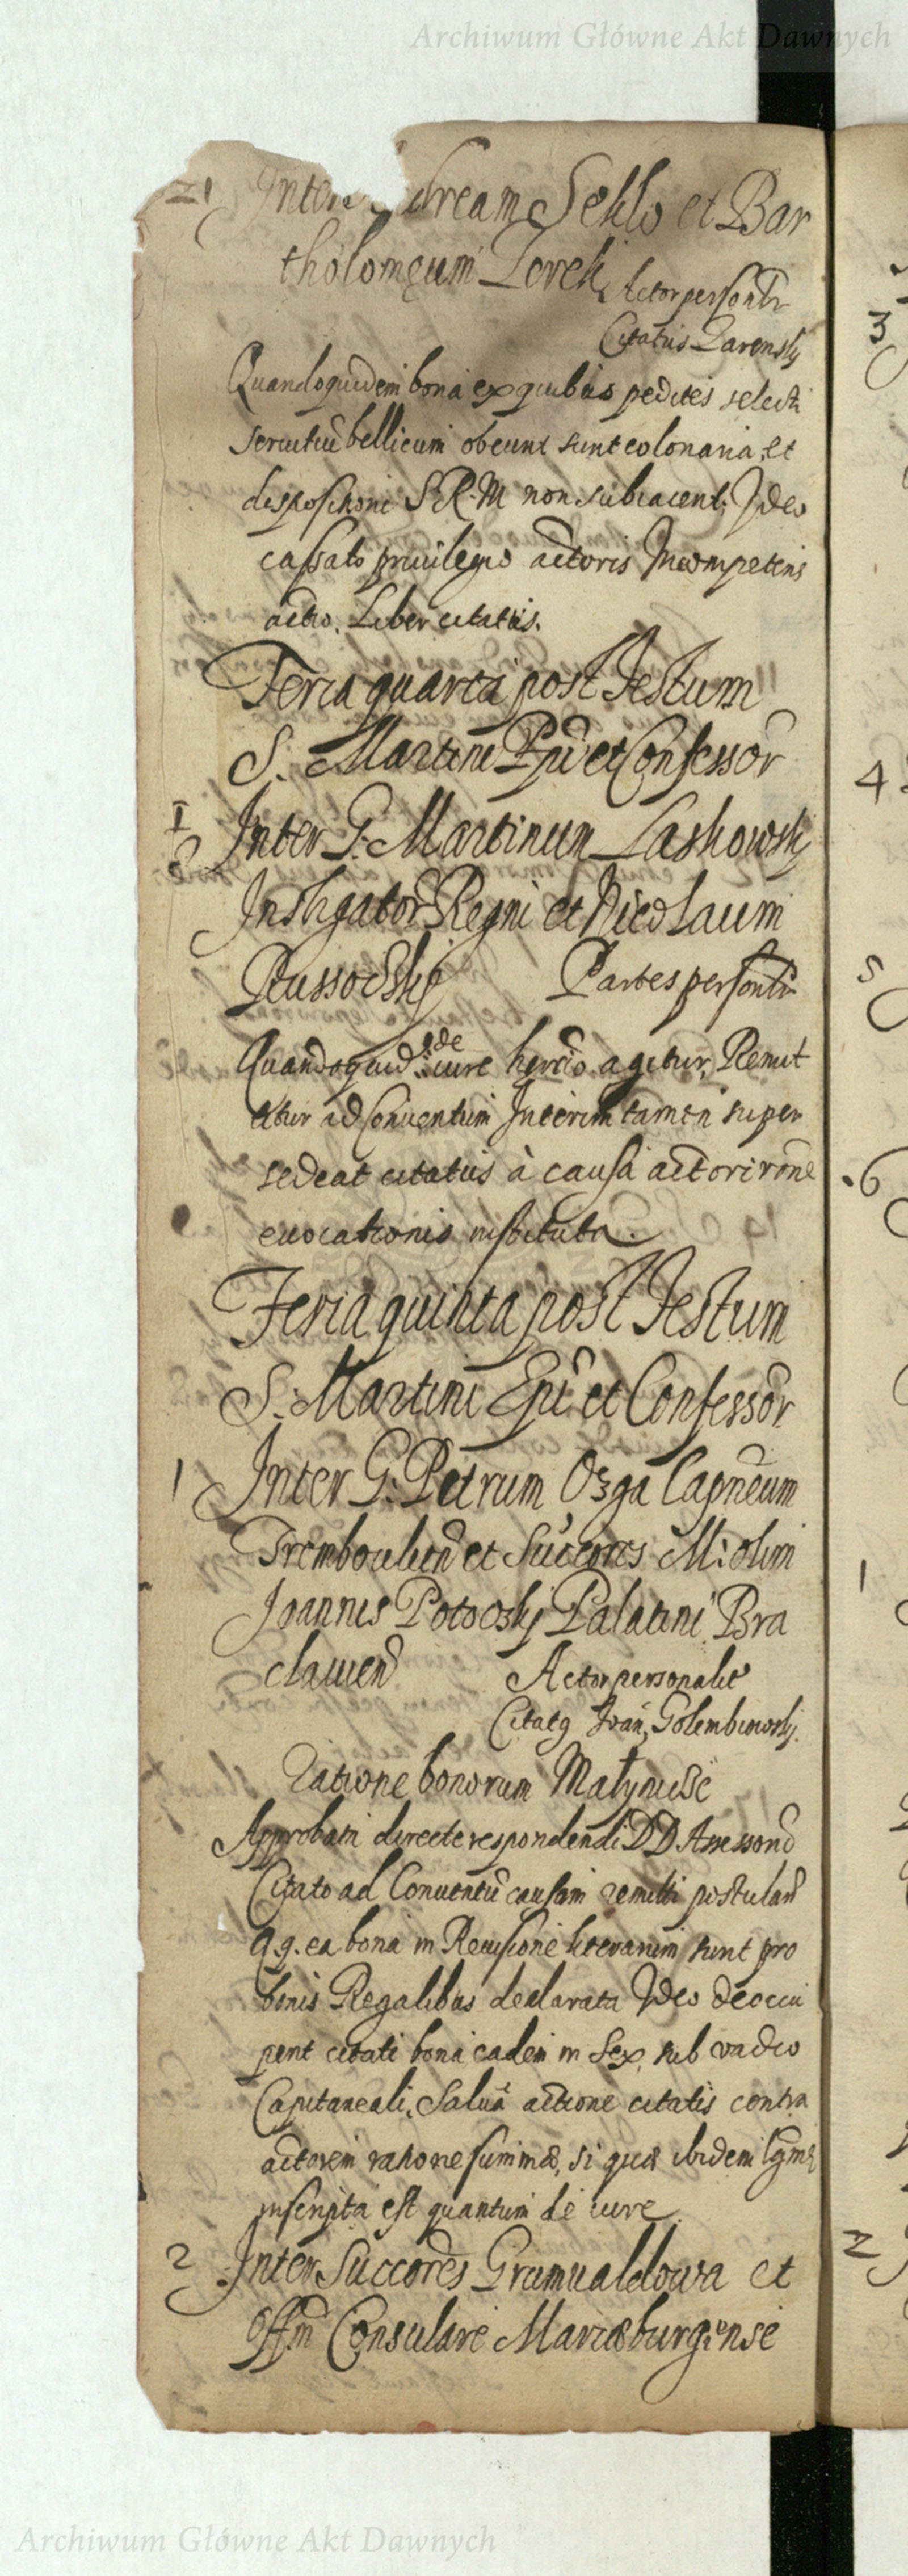 Archiwum Główne Akt Dawnych
21 Inter dream Sehlo et Bar
tholomęum Lorek Actor personlr
Citatus Zarensky
Quandoquidem bona ex quibus pedites selecti
seruitiu bellicum obeunt sunt colonaria, et
dispositioni S.R.M non subiacent; Ideo
cassato priuilegio actoris Incompetens
actio. Liber citatus.
Feria quarta post Festum
S. Martini Epi et Confessor
1 Inter G. Martinum Laskowsky
Instigator Regni et Nicolaum
Partes personlr
Quandoquid: de iure hered o agitur, Remit
atur ad Conuentum Interim tamen super
sedeat citatus à causa actori rone
euocationis instituta.
Feria quinta post Festum
S. Martini Epi et Confessor
1 Inter G. Petrum Ozga Capneum
Tremboulien et Succores M: olim
Joannis Potocky Palatini Bra
clauien Actor personalit
Citatg Ivan, Golembiowsky.
Ratione bonorum
Approbata directe respondendi DD Assessorio
Citato ad Conuentu causam remitti postulan
Q.q. ea bona in Reuisione literarum sunt pro
bonis Regalibus declarata Ideo deoccu
pent citati bona eadem in Sex, sub vadio
Capitaneali, Salua actione citatis contra
actorem ratione summæ, si quæ ibidem lgme
inscripta est quantum de iure
2 Inter Succores Grumualdowa et
Offm Consulare Mariæburgense
3
4
5
6
1
2
Archiwum Główne Akt Dawnych